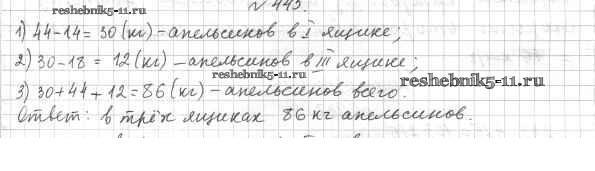 № 443.
reshebnik5-11.ru
1) 44-14= 30 (кг) – апельсинов в I ящике;
2) 30-18 = 12 (кг) – апельсинов в III ящике;
reshebnik5-11.ru
3) 30+44+12=86 (кг) – апельсинов всего.
reshebnik5-11.ru
Ответ: в трёх ящиках 86 кг апельсинов.